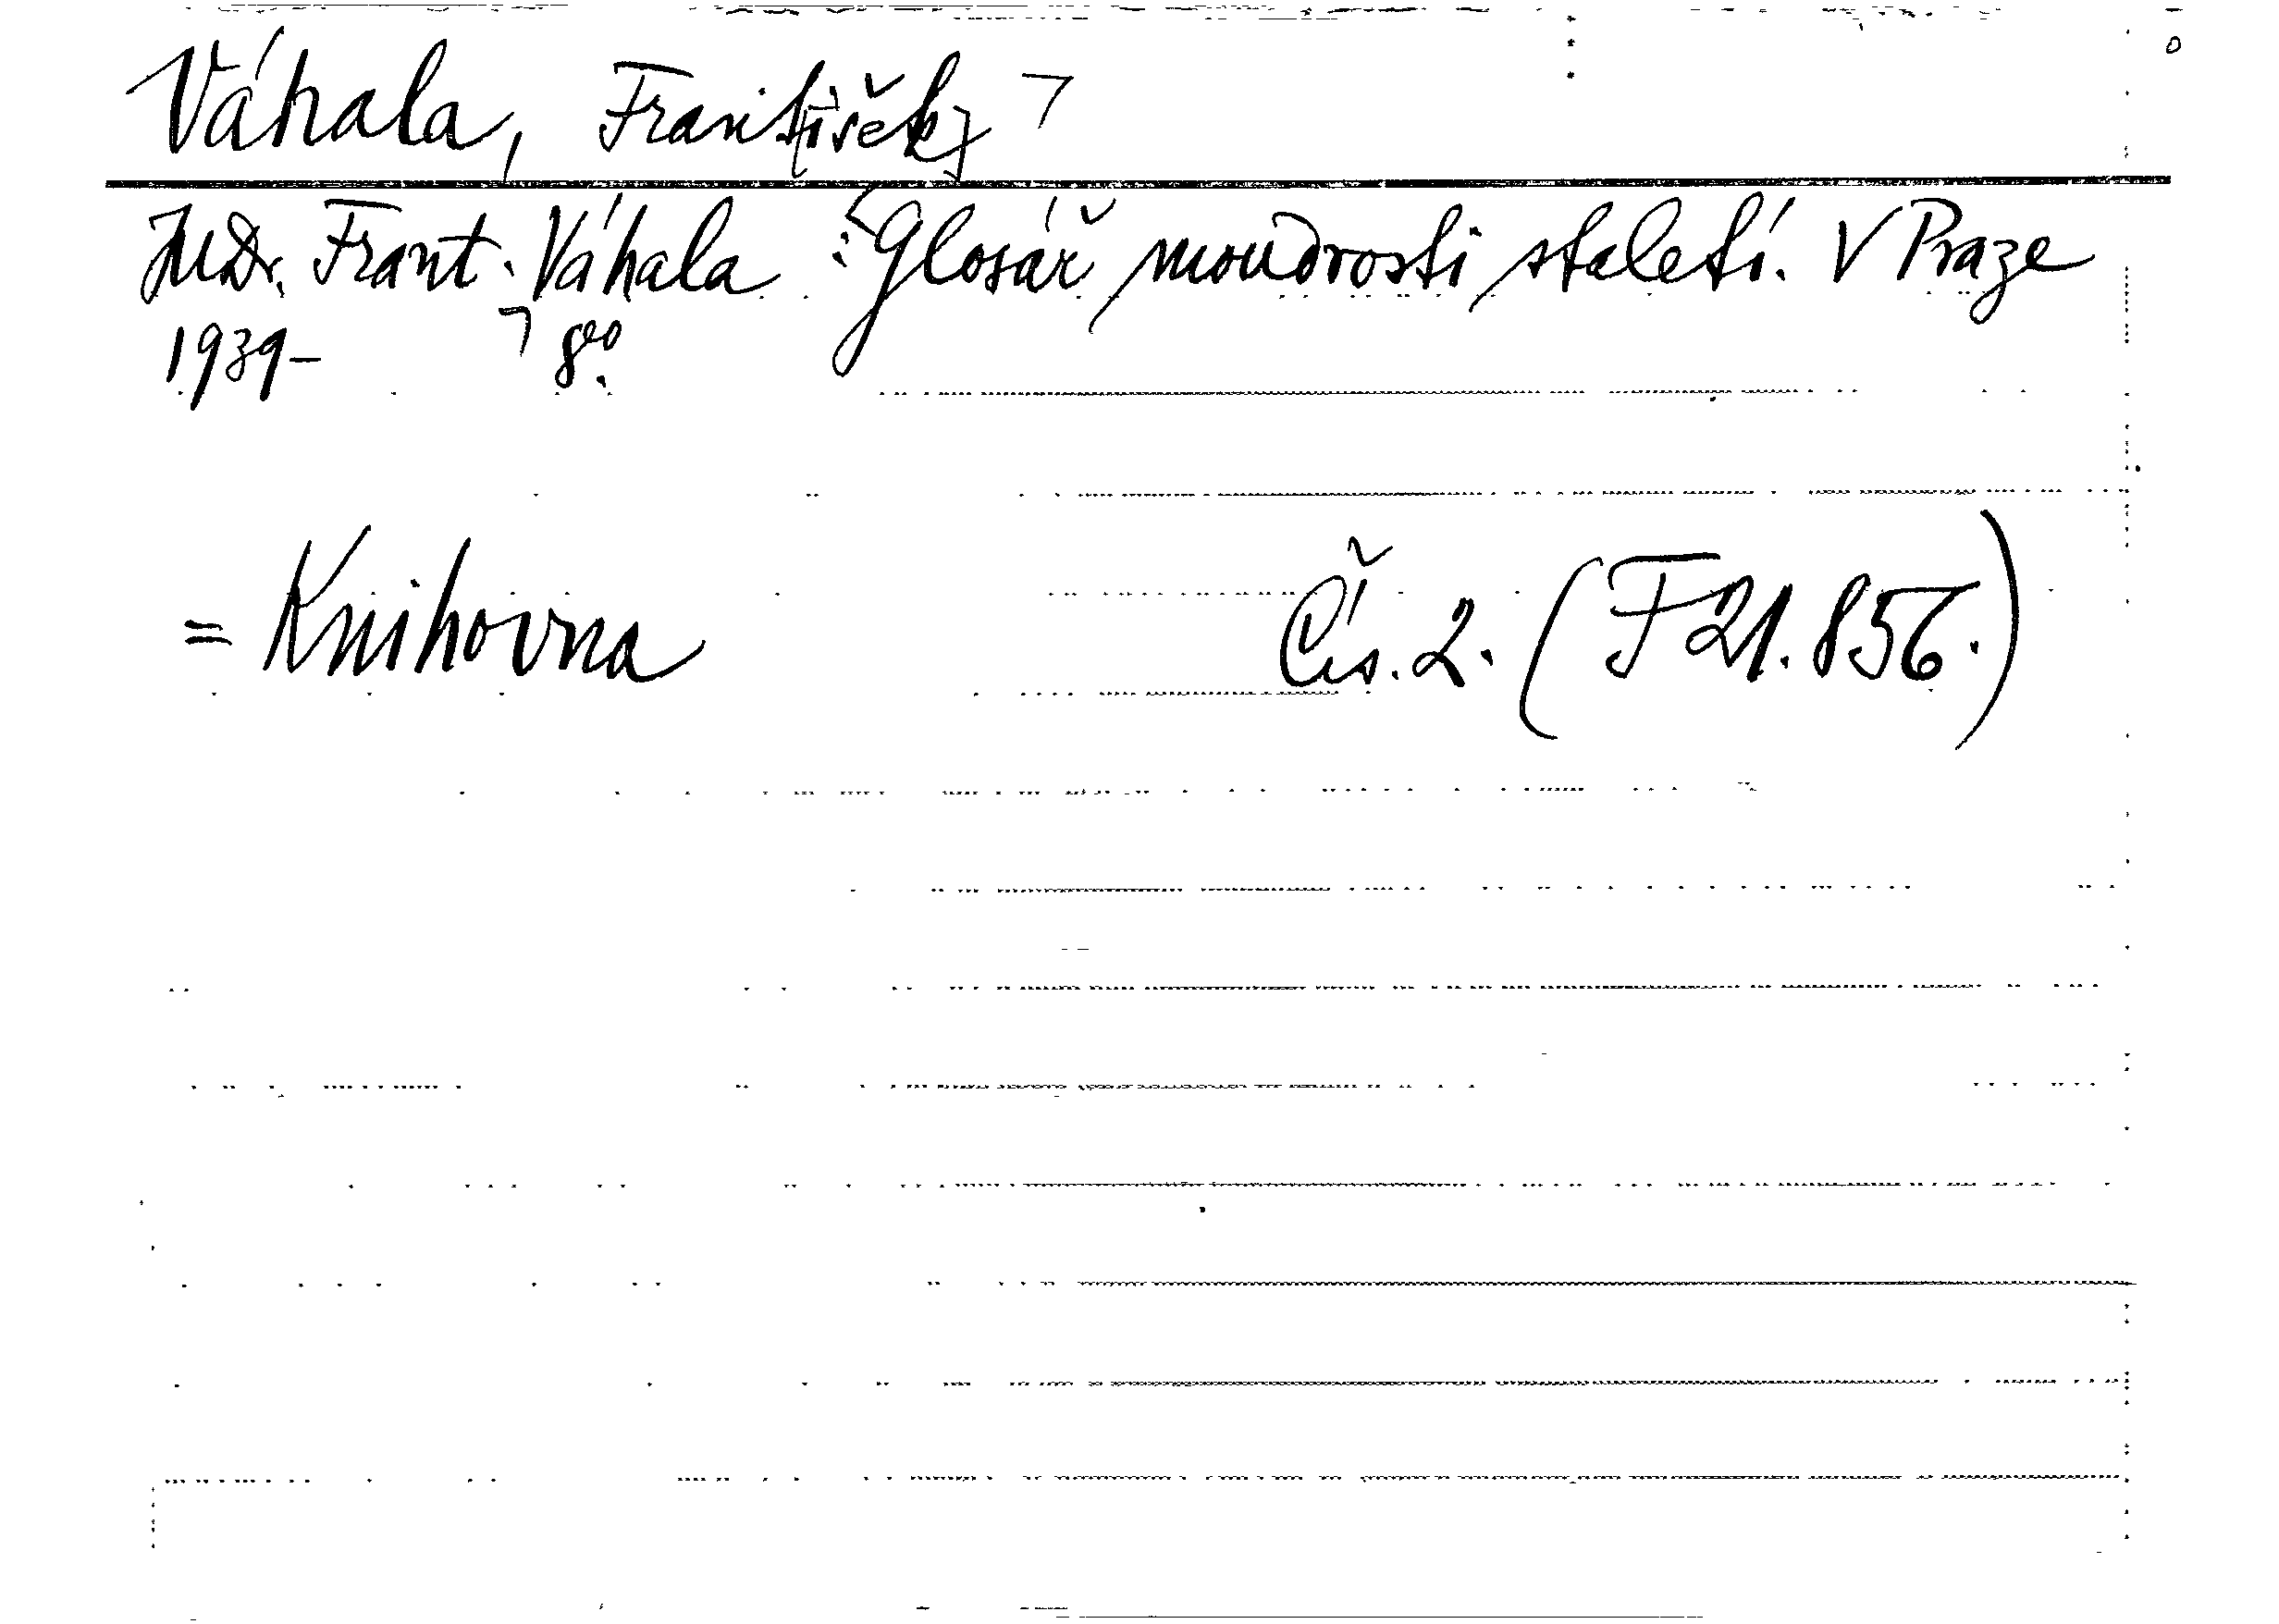 Váhala, Frant[išek]
JUDr. Frant. Váhala: Glosář moudrosti staletí. V Praze
1939- 8°.
= Knihovna Čís. 2. (F 21.856.)